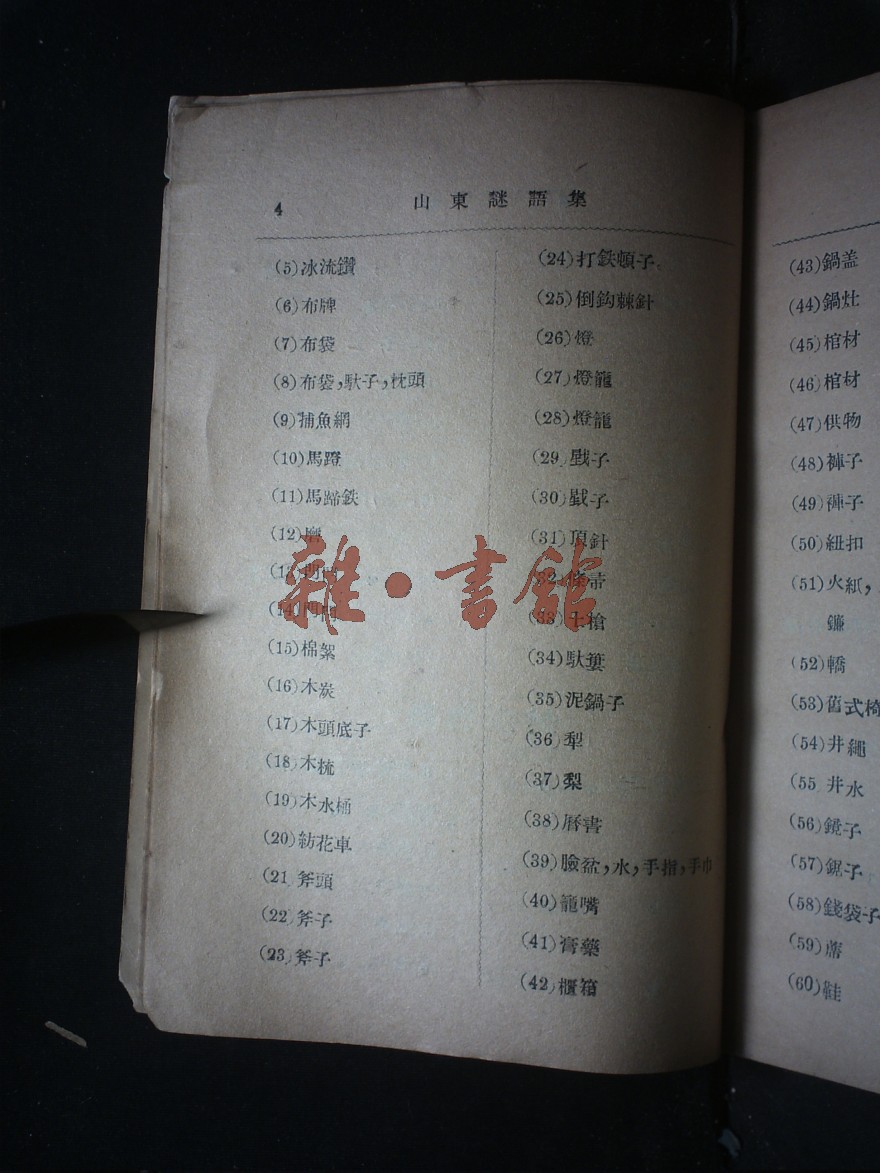 4
山東謎語集
(5)冰流鑽
(6)布牌
(7)布袋
(8)布袋,馱子,枕頭
(9)捕魚網
(10)馬蹬
(11)馬蹄鉄
(12)磨
(15)棉絮
(16)木炭
(17)木頭底子
(18)木梳
(19)木水桶
(20)紡花車
(21)斧頭
(22)斧子
(23)斧子
(24)打鉄頓子
(25)倒鈎棘針
(26)燈
(27)燈籠
(28)燈籠
(29)戥子
(30)戥子
(31)頂針
(33)土槍
(34)馱簍
(35)泥鍋子
(36)犁
(37)犁
(38)曆書
(39)臉盆,水,手指,手巾
(40)籠嘴
(41)膏藥
(42)櫃箱
(43)鍋盖
(44)鍋灶
(45)棺材
(46)棺材
(47)供物
(48)褲子
(49)褲子
(50)紐扣
(51)火紙,
鐮
(52)轎
(53)舊式椅
(54)井繩
(55)井水
(56)鏡子
(57)鋸子
(58)錢袋子
(59)蓆
(60)鞋
雜·書館